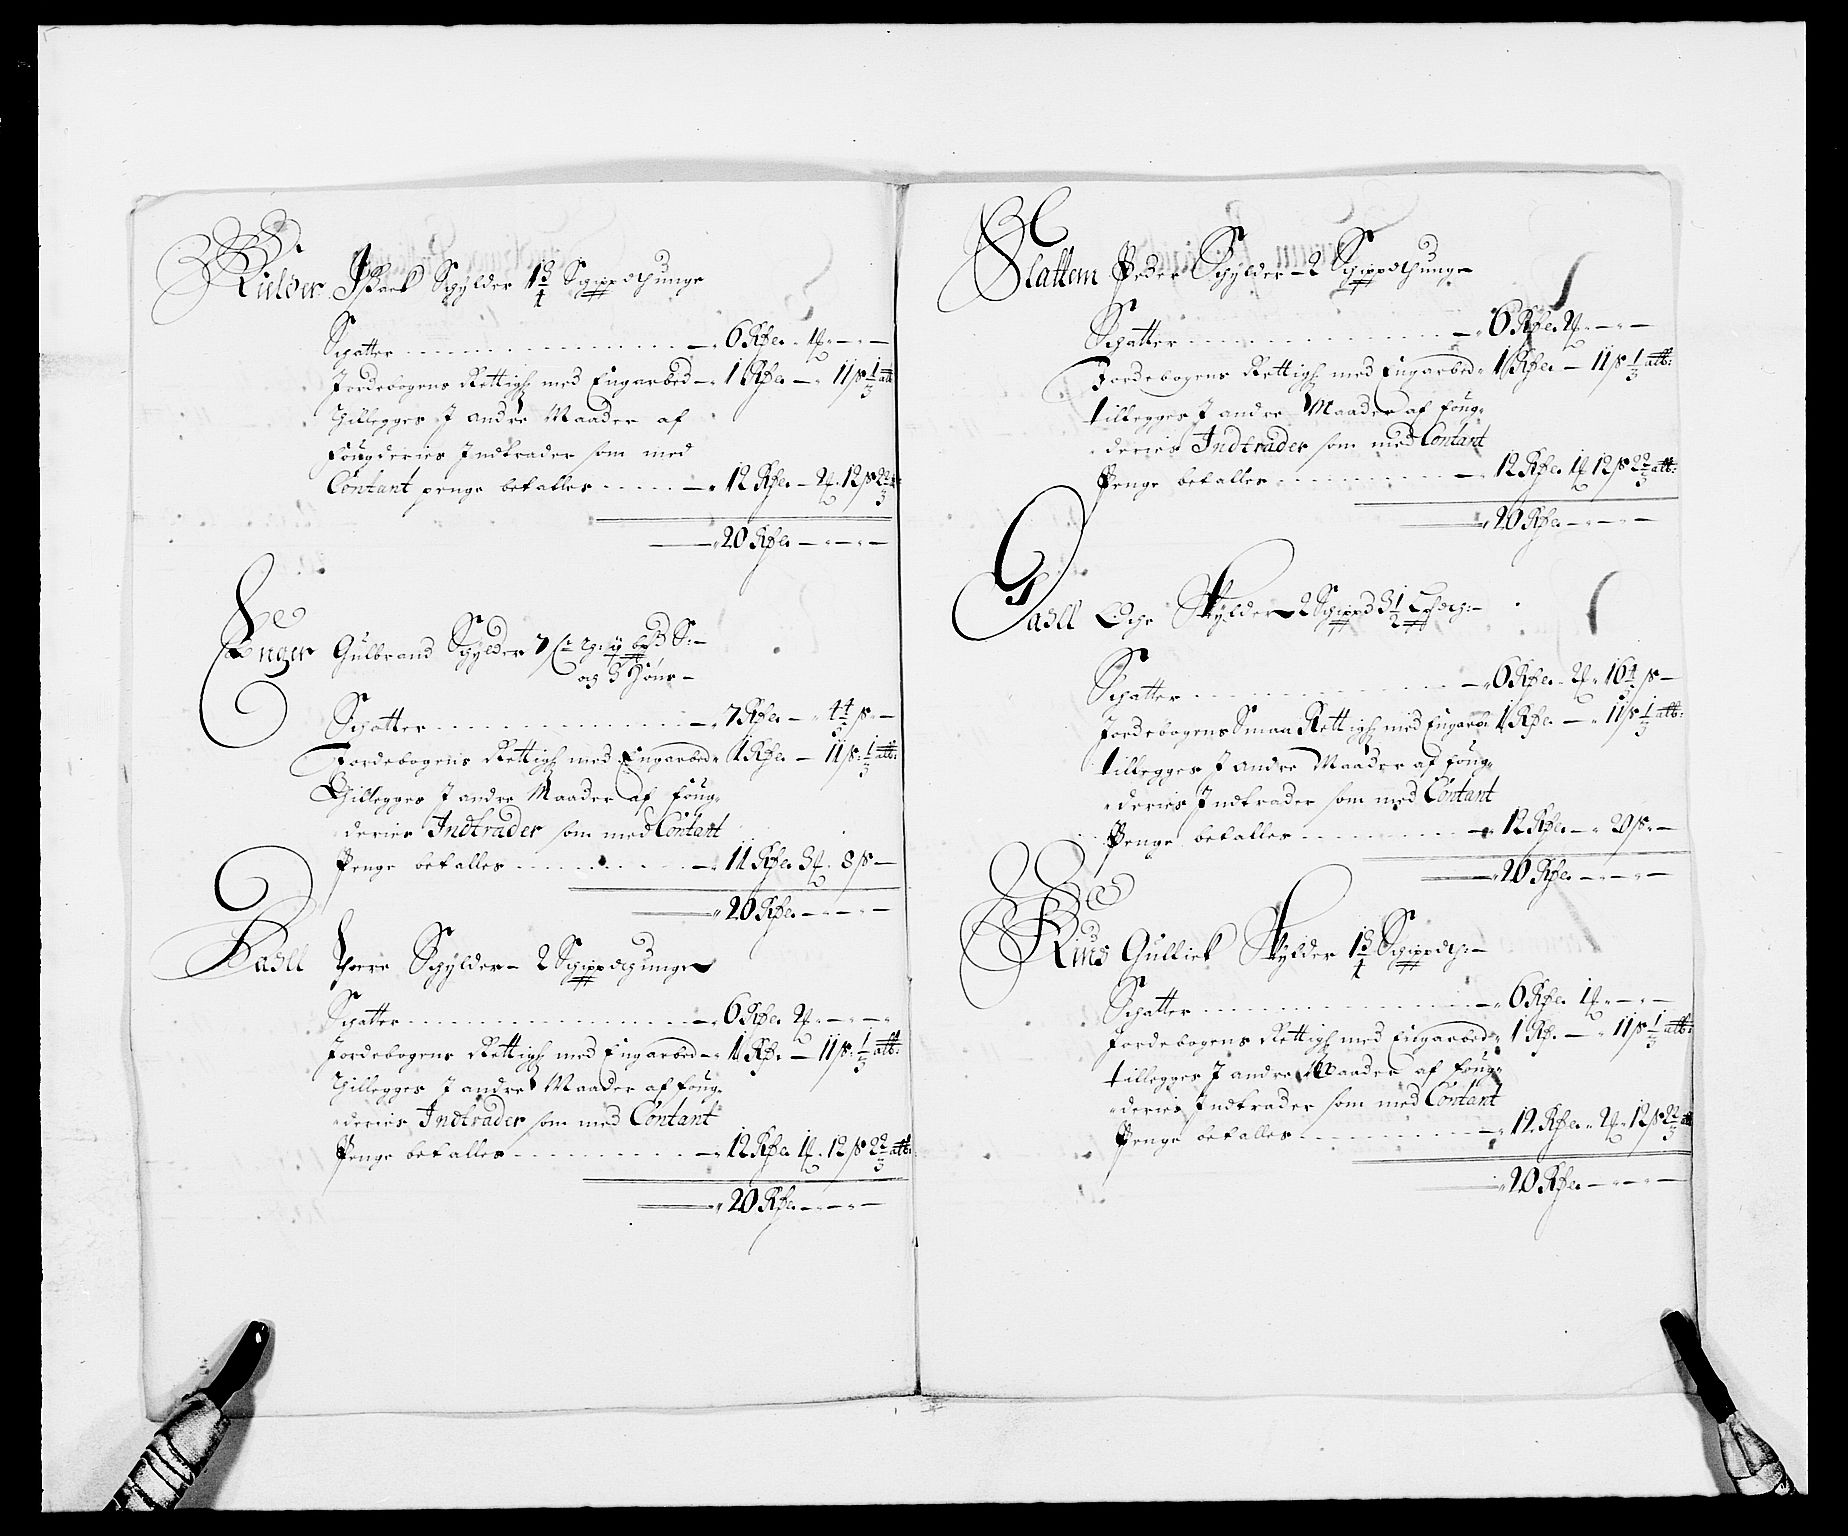 Kielder Isack Schylder 1 3/4 Schippdthunge
Schatter - - - 6 Rdr. 1 f. - -
Jordebogens Rettigh: med Eugarbed - 1 Rdr. - 11 ß 1/3 alb
Thillegges J andre Maader af
Fougderies Indtrader som med
Contant penge betalles - - - 12 Rdr. - 2 f. 12 ß 2 2/3
20 Rdr. - - -
Enger Gulbrand Schylder
og 3 Hönr -
Schatter - - - 7 Rdr. - 4 4/5 ß -
Jordebogens Rettigh: med Eugarbed 1 Rdr. - 11 ß 1/3 alb:
Thillegges J andre Maader af foug-
deries Indtrader som med Contant
Penge betalles - - - 11 Rdr. 3 f. 8 ß -
20 Rdr. - - -
Basll Thore Schylder - 2 Schippdthunge
Schatter - - - 6 Rdr. 2 f. - - -
Jordebogens Rettigh: med Eugarbed - 1 Rdr. - 11 ß 1/3 alb:
Thillegges J andre Maader af foug-
deries Indtrader som med Contant
Penge betalles - - - 12 Rdr. 1 f. 12 ß 2 2/3 alb:
20 Rdr. - - -
Slattem Peder Schylder - 2 Schippdthunge
Schatter - - - 6 Rdr. 2 f. - -
Jordebogens Rettigh: med Eugarbed 1 Rdr. - 11 ß 1/3 alb:
tillegges J andre Maader af foug-
deries Indtrader som med Contant
Penge betalles - - - 12 Rdr. 1 f. 12 ß 2 2/3 alb:
20 Rdr. - - -
Schylder 2 Schippd 3 1/2
Schatter - - - 6 Rdr. 2 f. 16 4/5 ß -
Jordebogens Smaa Rettigh: med Eugarb: 1 Rdr. - 11 ß 1/3 alb:
tillegges J andre Maader af foug-
deries Indtrader som med Contant
Penge betalles - - - 12 Rdr. - 20 ß -
20 Rdr. - - -
Rius Gulliek Schylder 1 3/4 Schippdth: -
Schatter - - - 6 Rdr. 1 f. - -
Jordebogens Rettigh: med Eugarbed 1 Rdr. - 11 ß 1/3 alb:
tillegges J andre Maader af foug-
deries Indtrader som med Contant
Penge betalles - - - 12 Rdr. 2 f. 12 ß 2 2/3 alb
20 Rdr. - - -